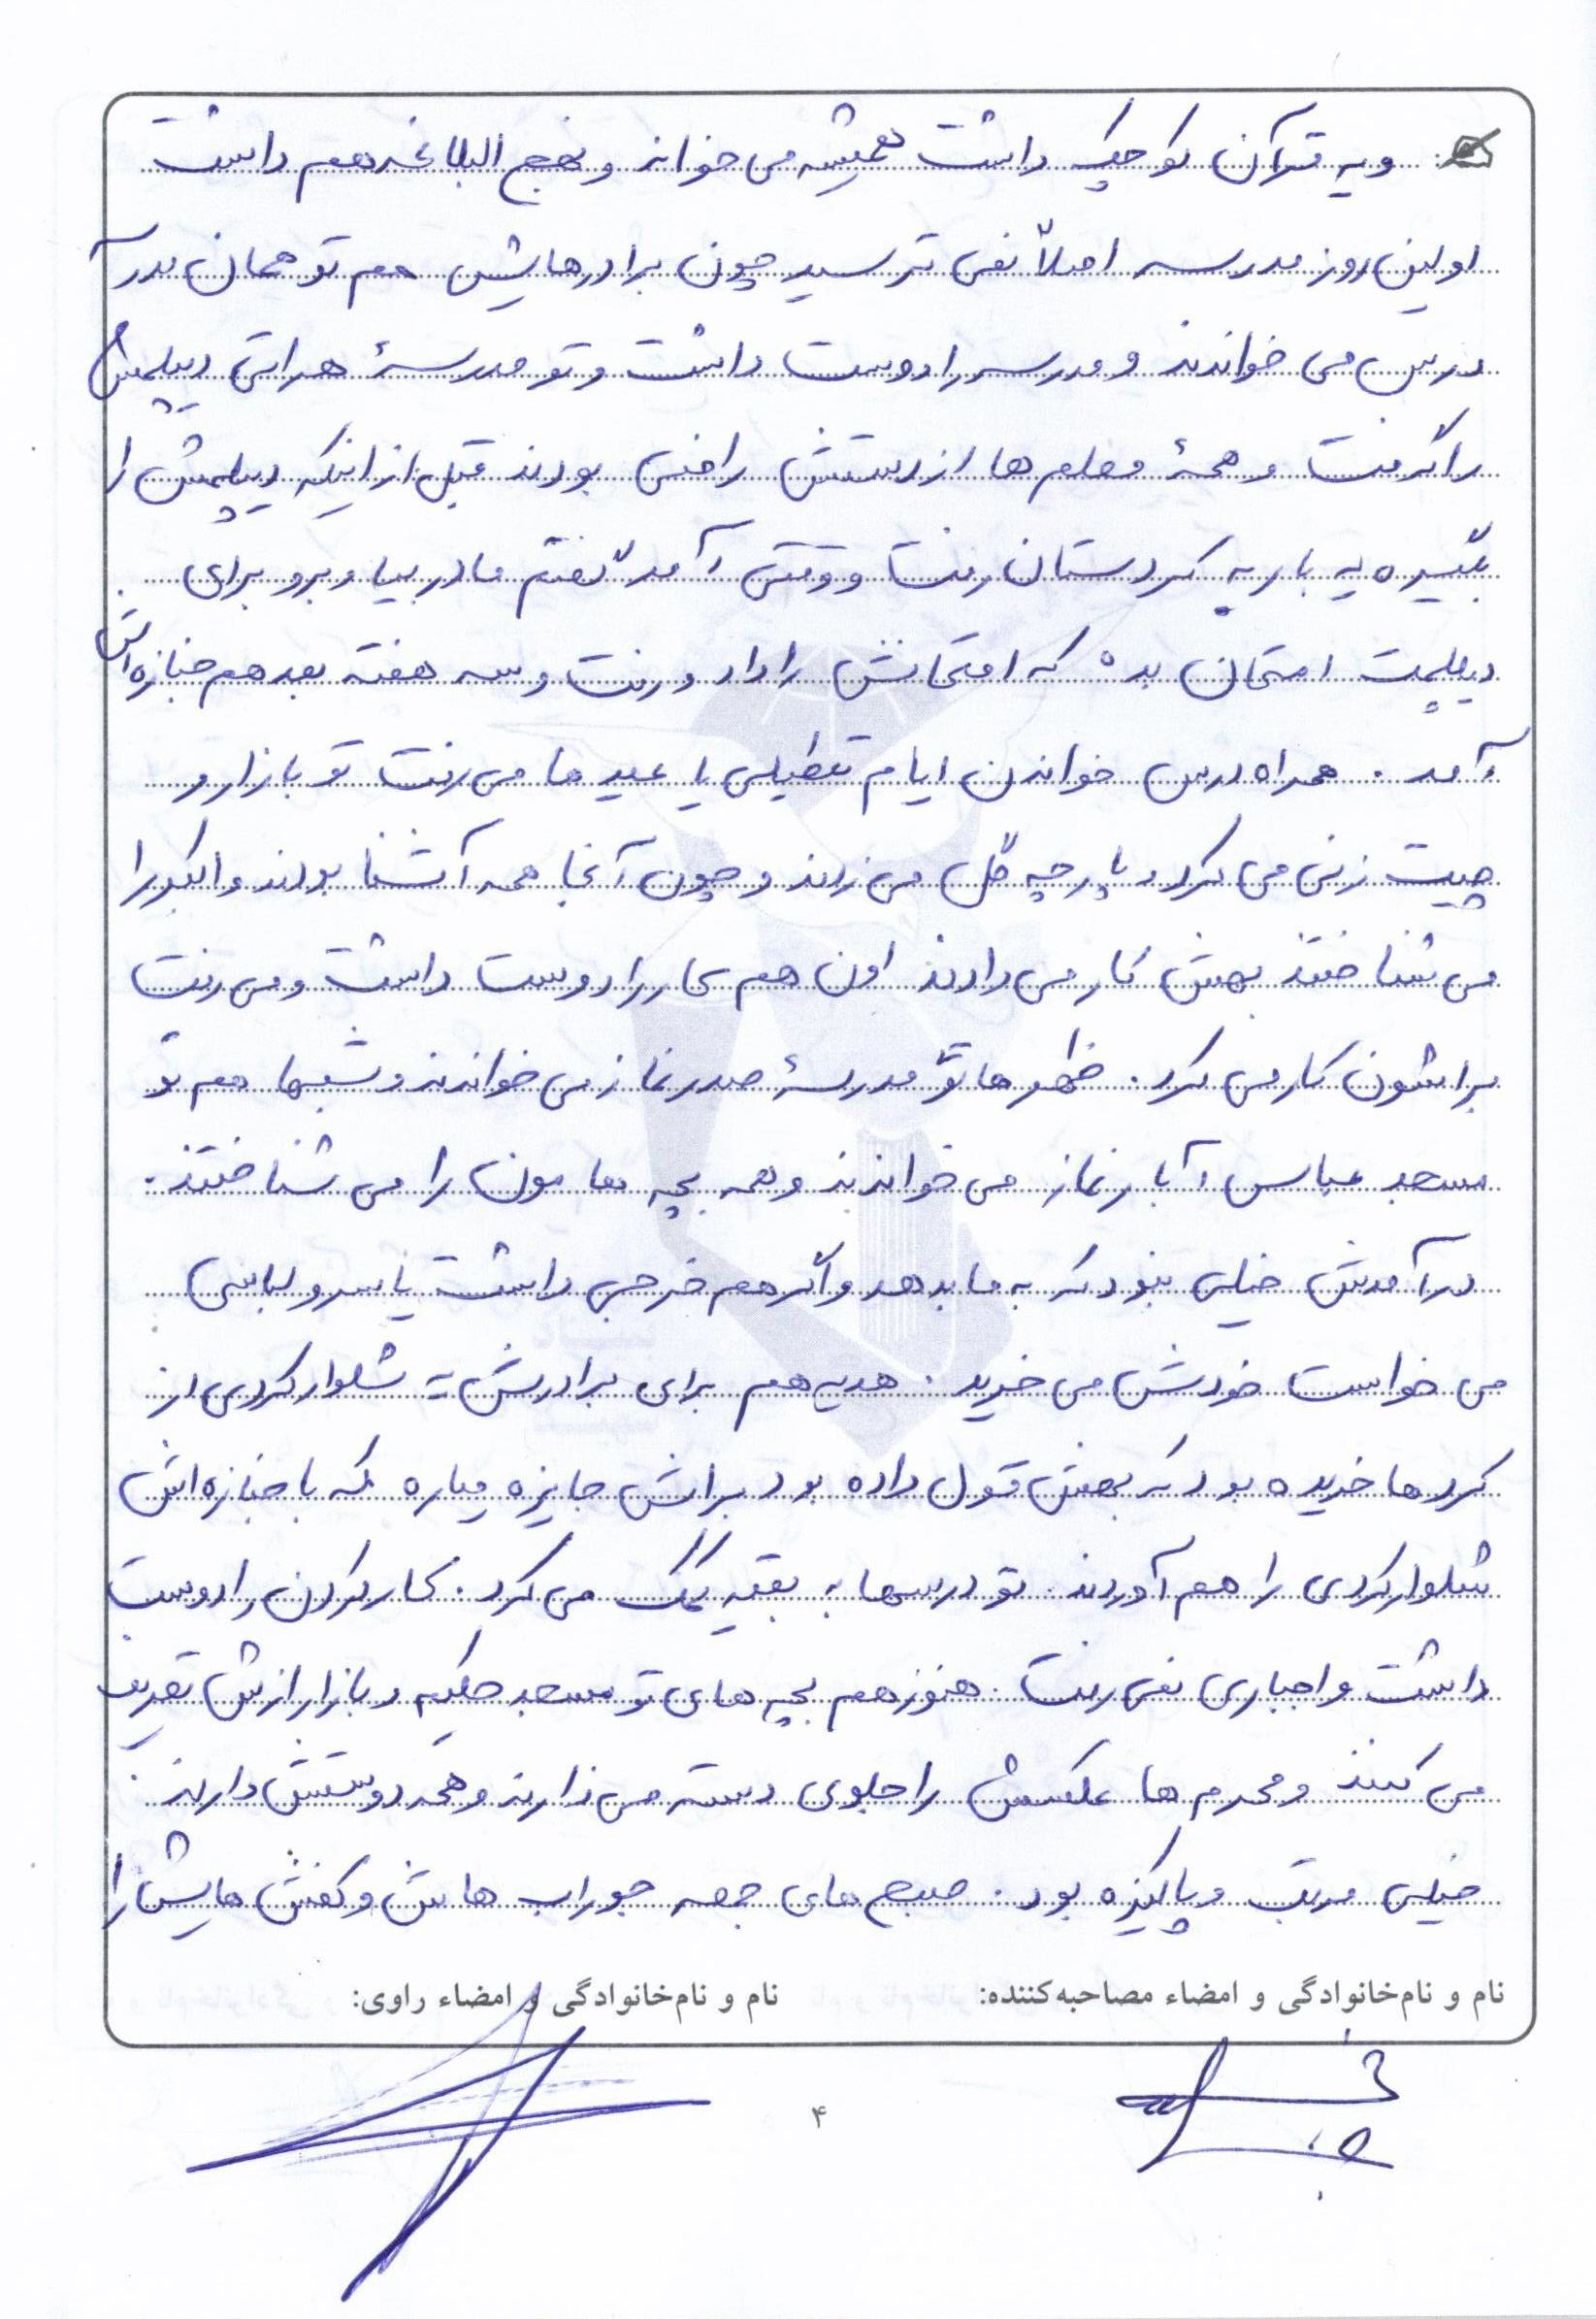 و یه قرآن کوچک داشت همیشه می خواند و نهج البلاغه هم داشت
اولین روز مدرسه اصلاً نمی ترسید چون برادرهایش هم تو همان مدر
درس می خواندند و مدرسه را دوست داشت و تو مدرسهٔ هراتی دیپلمش
را گرفت و همهٔ معلم ها از دستش راضی بودند قبل از اینکه دیپلمش را
بگیره یه بار به کردستان رفت و وقتی آمد گفتم مادر بیا و برو برای
دیپلمت امتحان بده که امتحانش را داد و رفت و سه هفته بعد هم جنازه اش
آمد . همراه درس خواندن ایام تعطیلی یا عید ها می رفت تو بازار و
چیت زنی می کرد و پارچه گل می زدند و چون آنجا همه آشنا بودند و اکبر را
می شناختند بهش کار می دادند اون هم کار را دوست داشت و می رفت
براشون کار می کرد . ظهرها تو مدرسهٔ صدر نماز می خواندند و شبها هم تو
مسجد عباس آباد نماز می خواندند و همه بچه هامون را می شناختند .
درآمدش خیلی نبود که به ما بدهد و اگر هم خرجی داشت یا سر و لباسی
می خواست خودش می خرید . هدیه هم برای برادرش یه شلوار کردی از
کردها خریده بود که بهش قول داده بود براش جایزه میاره که با جنازه اش
شلوار کردی را هم آوردند . تو درسها به بقیه کمک می کرد . کار کردن را دوست
داشت و اجباری نمی رفت . هنوز هم بچه های تو مسجد حکیم و بازار ازش تعریف
می کنند و محرم ها عکسش را جلوی دسته می ذارند و همه دوستش دارند .
خیلی مرتب و پاکیزه بود . صبح های جمعه جوراب هاش و کفش هایش را
نام و نام‌خانوادگی و امضاء مصاحبه‌کننده: نام و نام‌خانوادگی و امضاء راوی:
۴